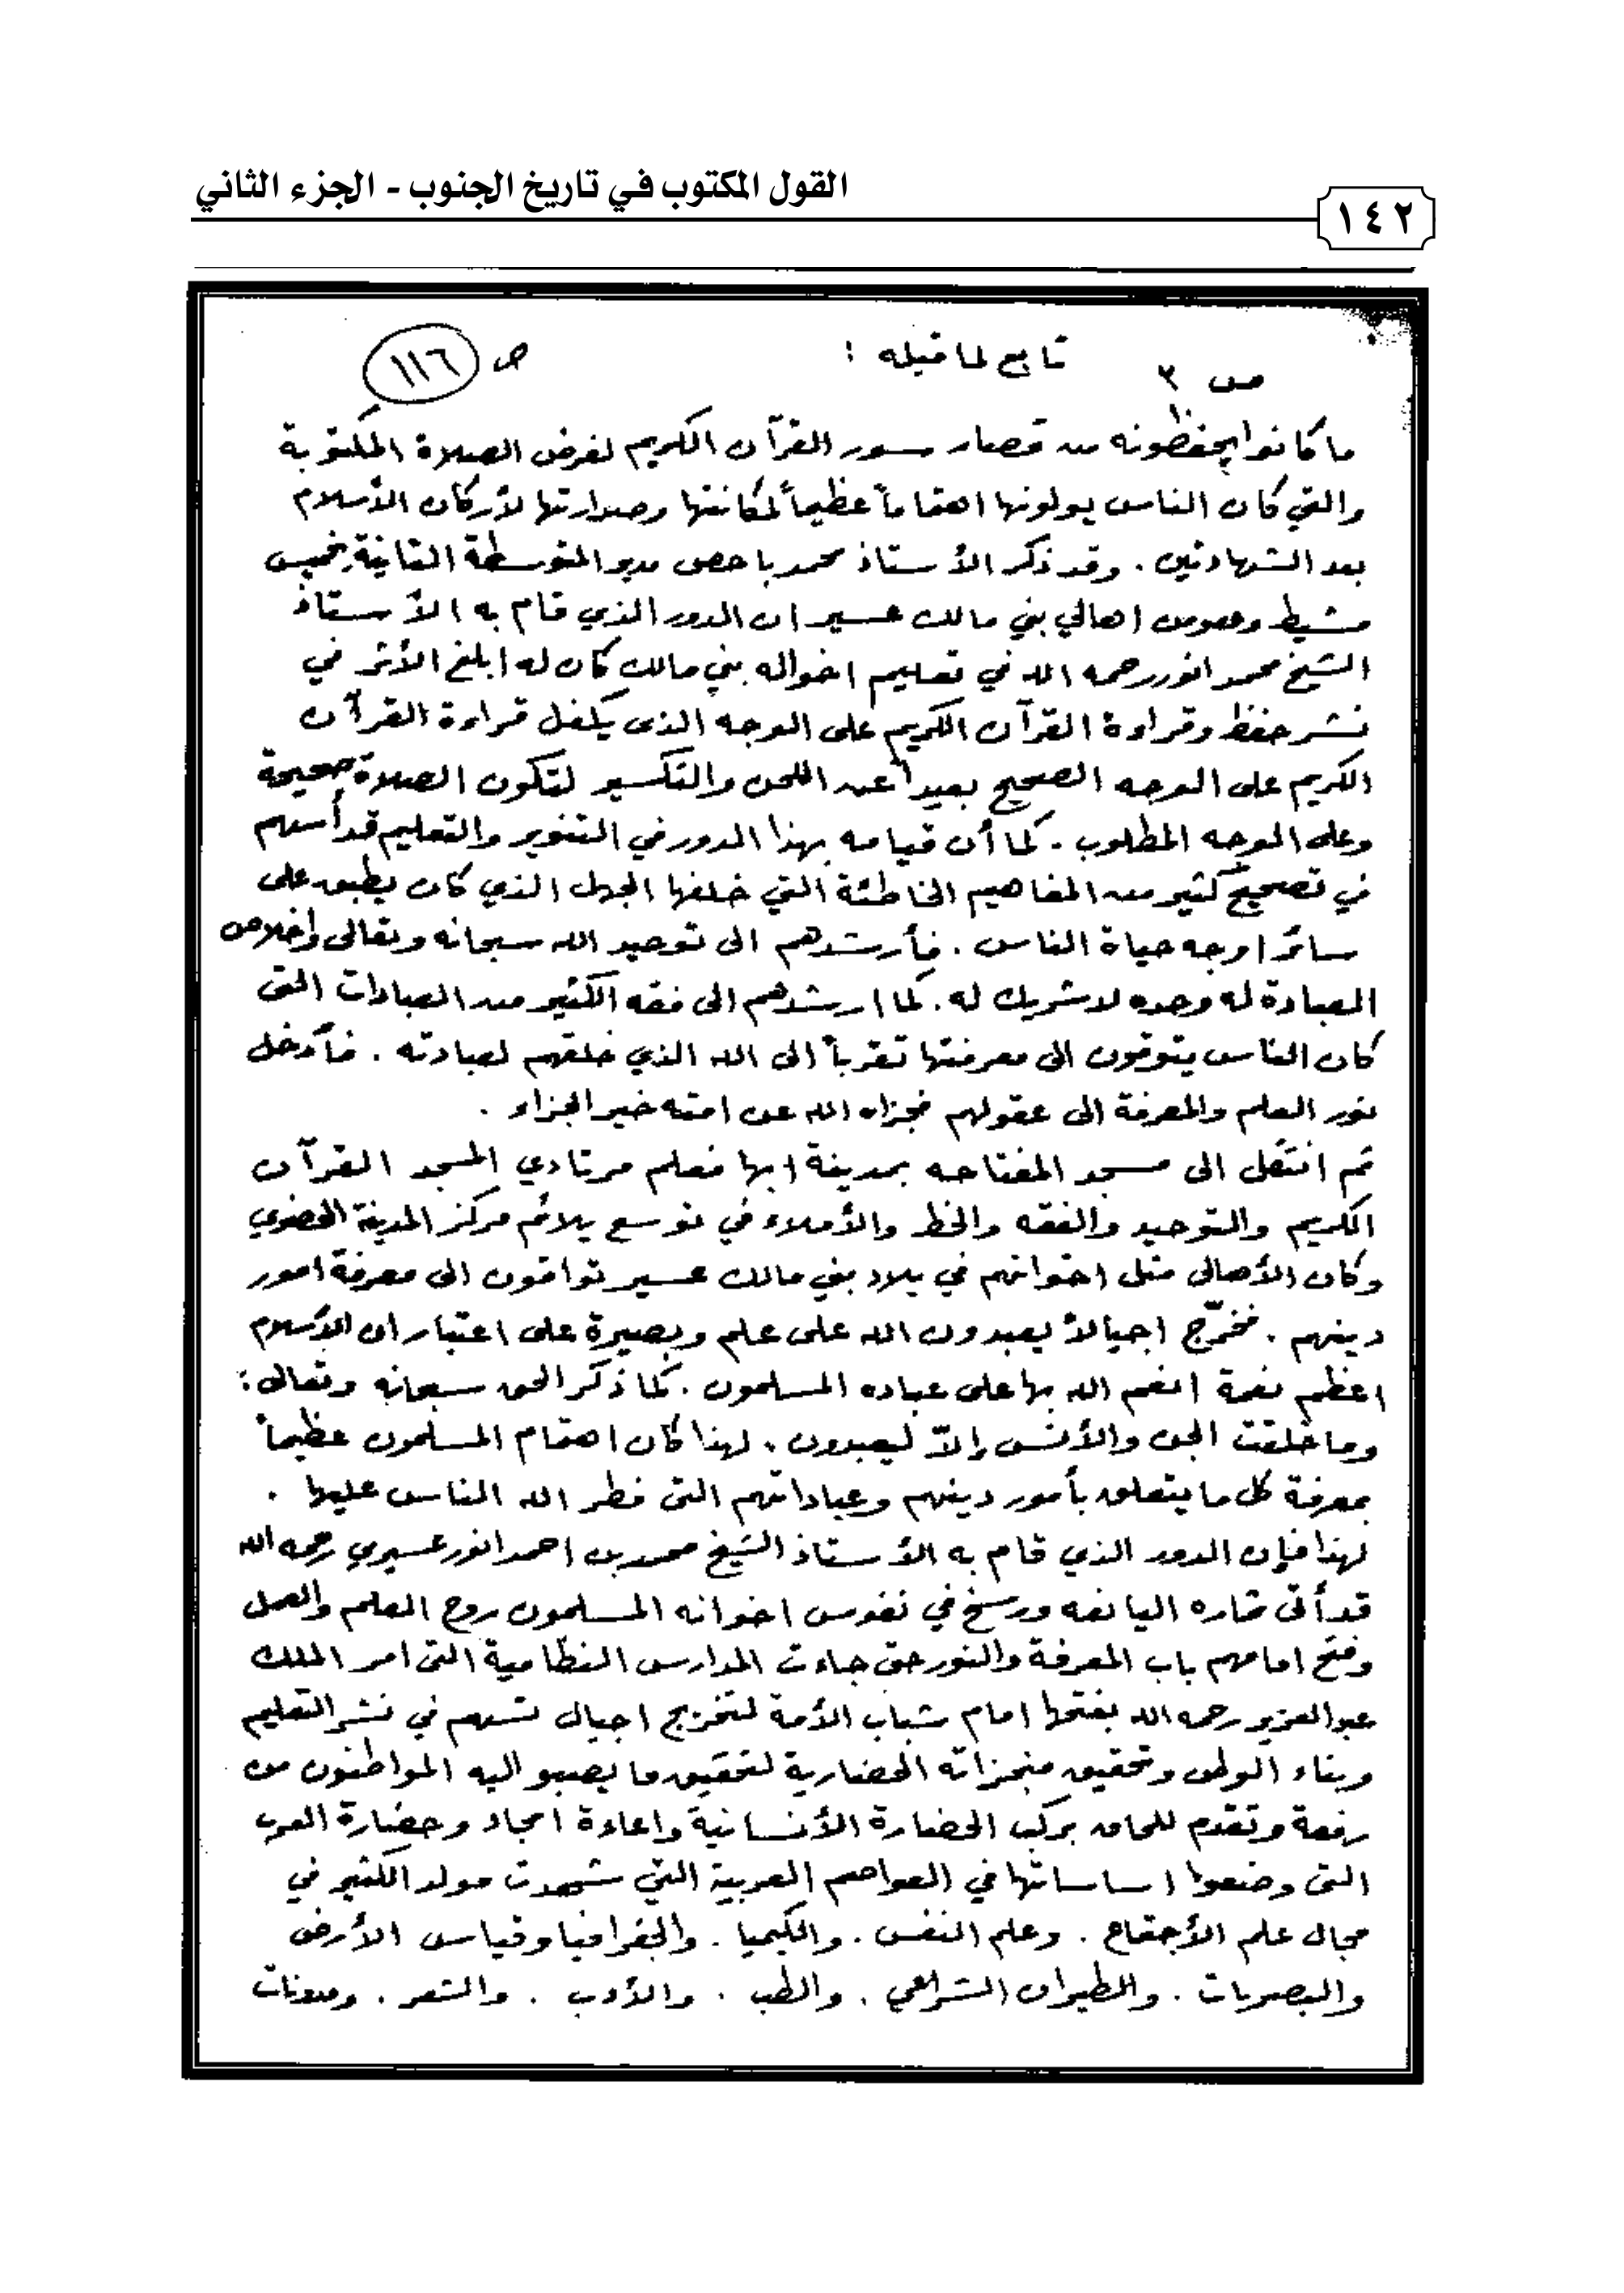 القول المكتوب في تاريخ الجنوب - الجزء الثاني
١٤٢
ص ٣ تابع لما قبله : ص ١١٦
ما كانوا يحفظونه من قصار سور القرآن الكريم لفرض الصلاة المكتوبة
والتي كان الناس يولونها اهتماماً عظيماً لمكانتها وصدارتها لأركان الأسلام
بعد الشهادتين . وقد ذكر الأستاذ محمد باحص مدير المتوسطة الثانية بخميس
مشيط وهومن اهالي بني مالك عسير ان الدور الذي قام به الأستاذ
الشيخ محمد انور رحمه الله في تعليم اخواله بني مالك كان له ابلغ الأثر في
نشر حفظ وقراءة القرآن الكريم على الوجه الذى يكفل قراءة القرآن
الكريم على الوجه الصحيح بعيداً عن اللحن والتكسير لتكون الصلاة صحيحة
وعلى الوجه المطلوب . كما أن قيامه بهذا الدور في التنوير والتعليم قد أسهم
في تصحيح كثير من المفاهيم الخاطئة التي خلفها الجهل الذي كان يطبق على
سائر اوجه حياة الناس . فأرشدهم الى توحيد الله سبحانه وتعالى واخلاص
العبادة له وحده لاشريك له . كما ارشدهم الى فقه الكثير من العبادات التى
كان الناس يتوقون الى معرفتها تقرباً الى الله الذي خلقهم لعبادته . فأدخل
نور العلم والمعرفة الى عقولهم فجزاه الله عن امته خير الجزاء .
ثم انتقل الى مسجد المفتاحه بمدينة ابها فعلم مرتادي المسجد القرآن
الكريم والتوحيد والفقه والخط والأملاء في توسع يلائم مركز المدينة الحضري
وكان الأهالى مثل اخوانهم في بلاد بني مالك عسير تواقون الى معرفة امور
دينهم . فخرّج اجيالاً يعبدون الله على علم وبصيرة على اعتبار ان الأسلام
اعظم نعمة انعم الله بها على عباده المسلمون . كما ذكر الحق سبحانه وتعالى :
وما خلقت الجن والأنس إلاّ ليعبدون . لهذا كان اهتمام المسلمون عظيماً
بمعرفة كل ما يتعلق بأمور دينهم وعباداتهم التى فطر الله الناس عليها .
لهذا فإن الدور الذي قام به الأستاذ الشيخ محمد بن احمد انور عسيري رحمه الله
قد أتى ثماره اليانعه ورسخ في نفوس اخوانه المسلمون روح العلم والعمل
وفتح امامهم باب المعرفة والنور حتى جاءت المدارس النظامية التى امر الملك
عبدالعزيز رحمه الله بفتحها امام شباب الأمة لتخريج اجيال تسهم في نشر التعليم
وبناء الوطن وتحقيق منجزاته الحضارية لتحقيق ما يصبو اليه المواطنون من
رفعة وتقدم للحاق بركب الحضارة الأنسانية واعادة امجاد وحضارة العرب
التى وضعوا اساساتها في العواصم العربية التي شهدت مولد الكثير في
مجال علم الأجتماع . وعلم النفس . والكيميا . والجغرافيا وقياس الأرض
والبصريات . والطيران الشراعي . والطب . والأدب . والشعر . ومدونات